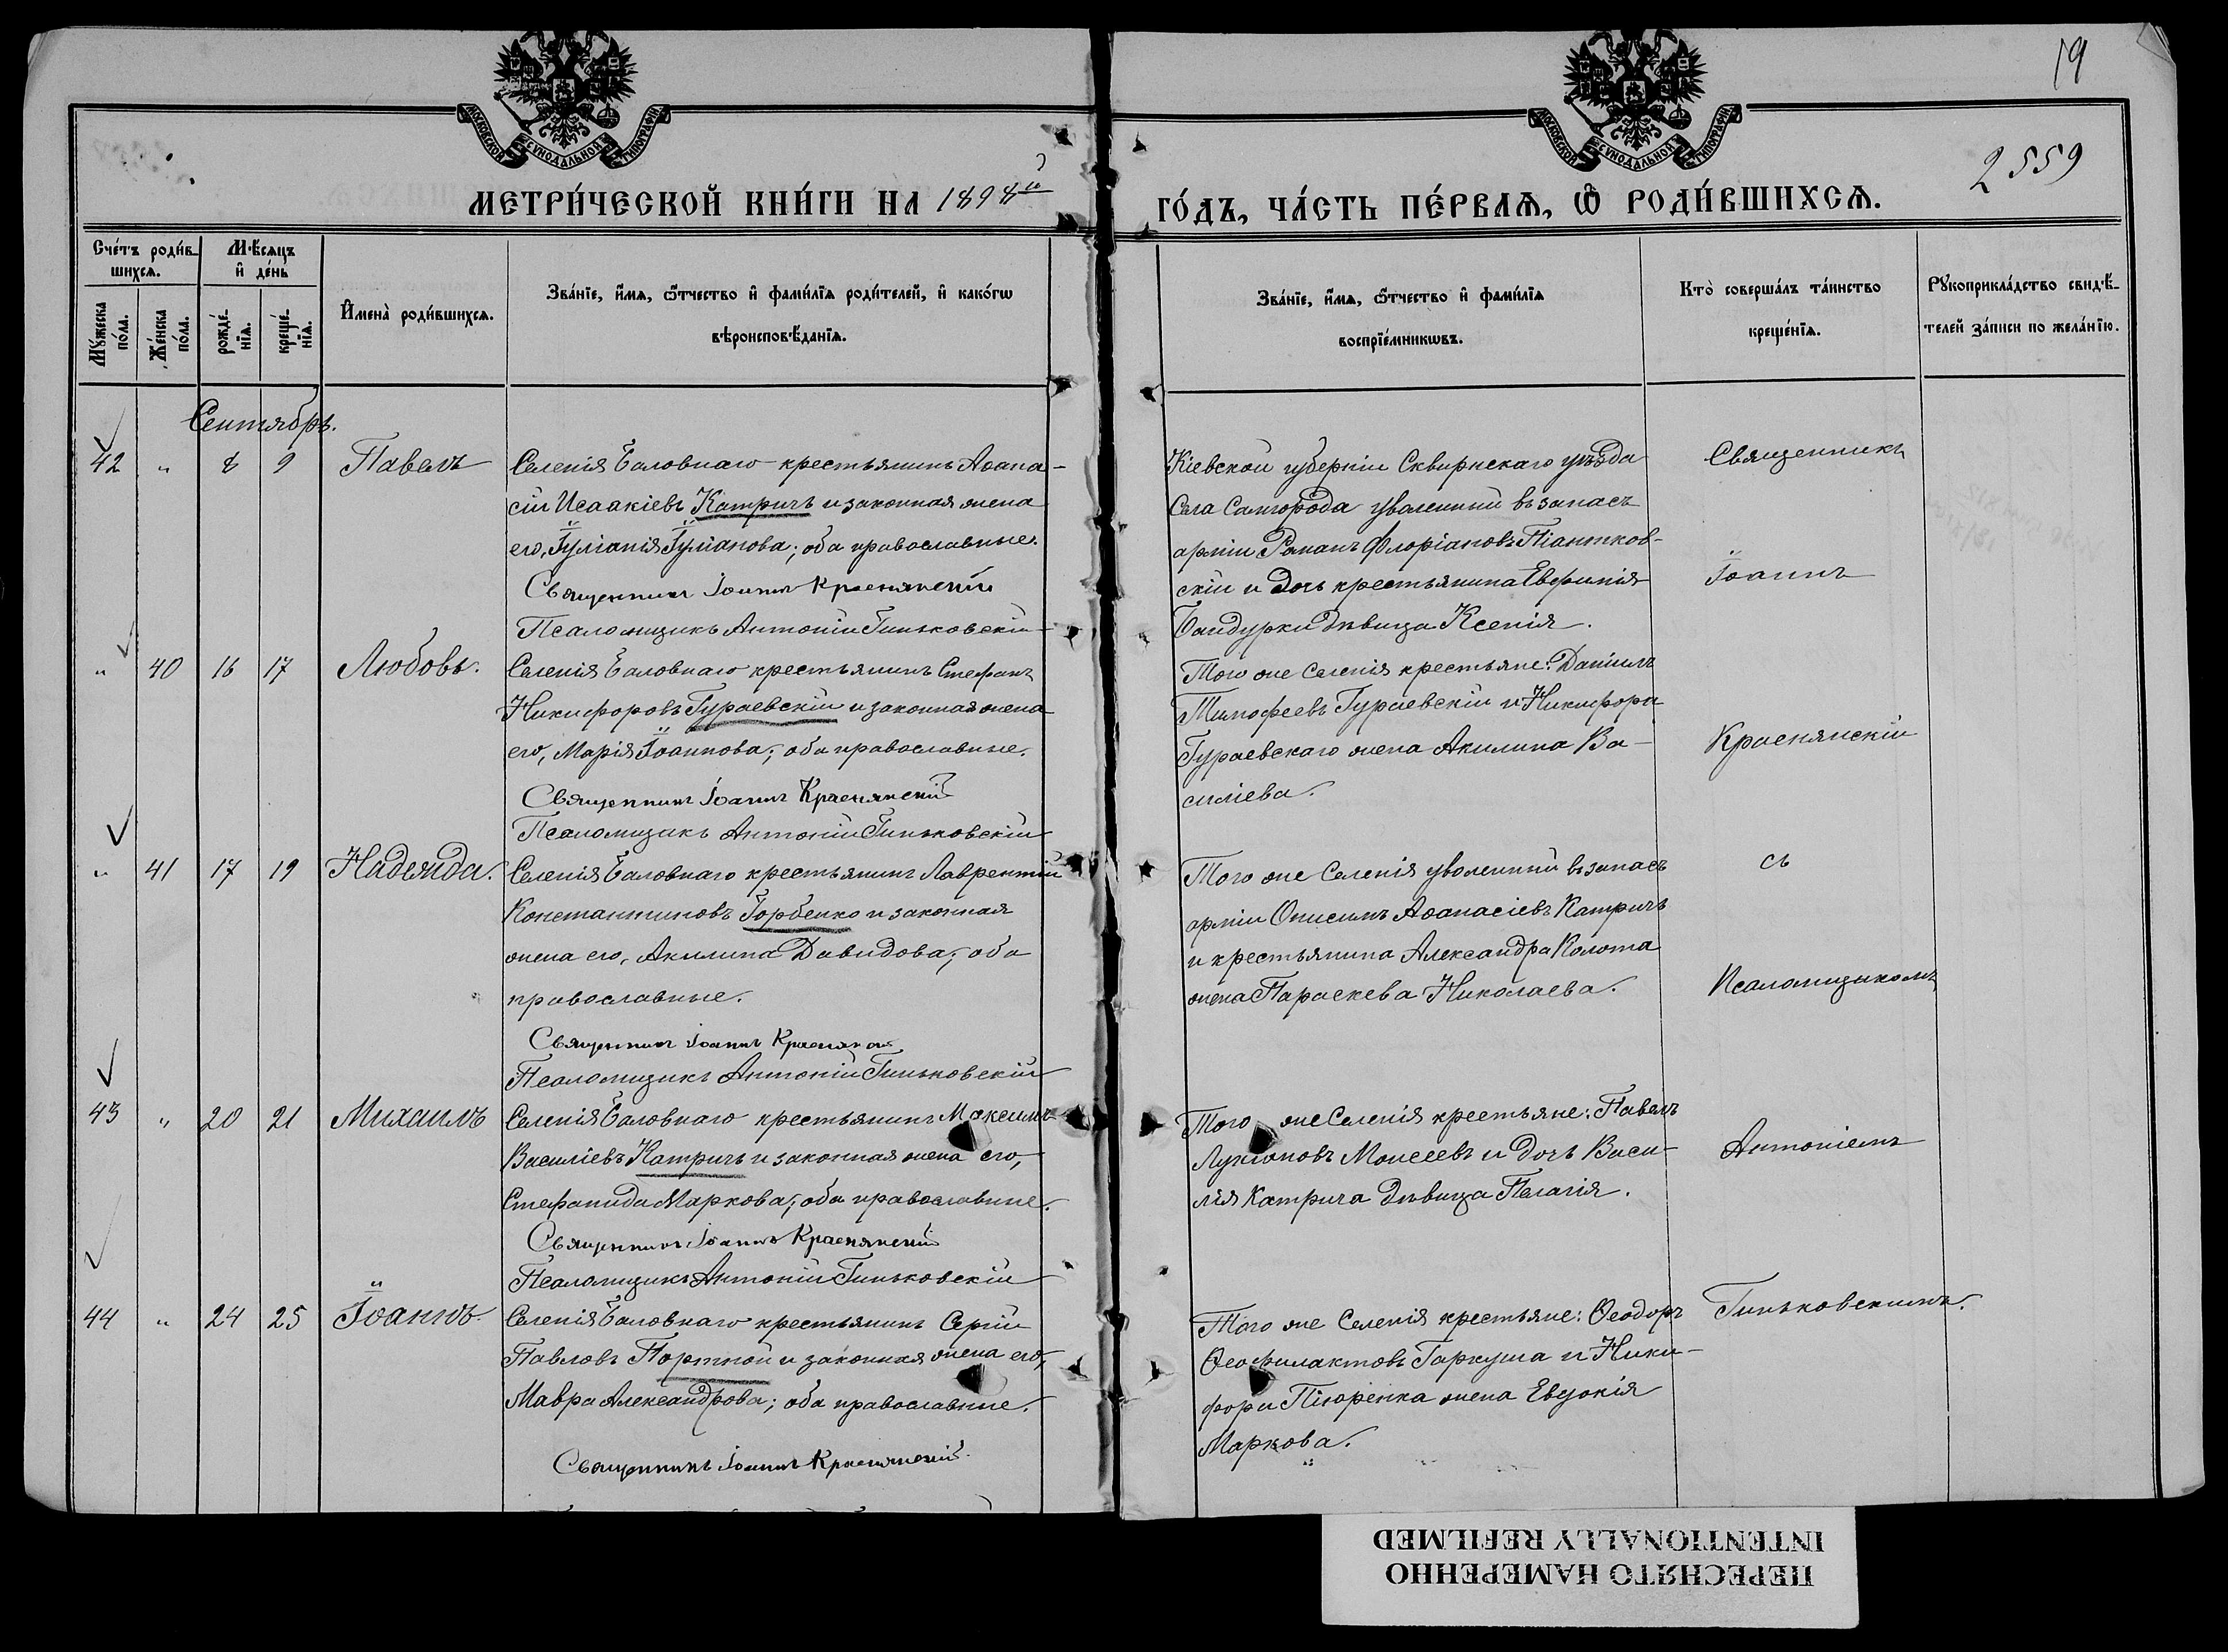 19
2559
МОСКОВСКОЙ СѴНОДАЛЬНОЙ ТИПОГРАФІИ
МОСКОВСКОЙ СѴНОДАЛЬНОЙ ТИПОГРАФІИ
МЕТРИ́ЧЕСКОЙ КНИ́ГИ НА 1898й
ГО́ДЪ, ЧА́СТЬ ПЕ́РВАѦ, Ѡ҆ РОДИ́ВШИХСѦ.
Сче́тъ роди́в-
шихсѧ.
Мꙋ́жеска по́ла.
Же́нска по́ла.
Мѣ́сѧцъ
и҆ де́нь
рожде́-нїѧ.
креще́-нїѧ.
И҆мена̀ роди́вшихсѧ.
Зва́нїе, и҆́мѧ, ѻ҆́тчество и҆ фами́лїѧ роди́телей, и҆ како́гѡ
вѣроисповѣ́данїѧ.
Зва́нїе, и҆́мѧ, ѻ҆́тчество и҆ фами́лїѧ
воспрїе́мникѡвъ.
Кто̀ соверша́лъ та́инство
креще́нїѧ.
Рꙋкоприкла́дство свидѣ́-
телей за́писи по жела́нїю.
Сентябрь.
42 " 8 9 Павелъ
Селенія Баловнаго крестьянинъ Аѳана-
сій Исаакіевъ Катричъ и законная жена
его, Іуліанія Іуліанова; оба православные.
Священникъ Іоаннъ Краснянскій
Псаломщикъ Антоній Гиньковскій
Кіевской губерніи Сквирнскаго уѣзда
Села Самгорода уволенный въ запасъ
арміи Романъ Флоріановъ Піантков-
скій и дочь крестьянина Евфимія
Бандурки дѣвица Ксенія.
Священникъ
Іоаннъ
" 40 16 17 Любовь.
Селенія Баловнаго крестьянинъ Стефанъ
Никифоровъ Гураевскій и законная жена
его, Марія Іоаннова; оба православные.
Священникъ Іоаннъ Краснянскій
Псаломщикъ Антоній Гиньковскій
Того же селенія крестьяне: Даніилъ
Тимофеевъ Гураевскій и Никифора
Гураевскаго жена Акилина Ва-
силіева.
Краснянскій
" 41 17 19 Надежда.
Селенія Баловнаго крестьянинъ Лаврентій
Константиновъ Горбенко и законная
жена его, Акилина Давидова; оба
православные.
Священникъ Іоаннъ Краснянскій
Псаломщикъ Антоній Гиньковскій
Того же селенія уволенный въ запасъ
арміи Онисимъ Аѳанасіевъ Катричъ
и крестьянина Александра Колота
жена Параскева Николаева.
съ
Псаломщикомъ
43 " 20 21 Михаилъ
Селенія Баловнаго крестьянинъ Максимъ
Василіевъ Катричъ и законная жена его,
Стефанида Маркова; оба православные.
Священникъ Іоаннъ Краснянскій
Псаломщикъ Антоній Гиньковскій
Того же Селенія крестьяне: Павелъ
Лукіановъ Моисеевъ и дочь Васи-
лія Катрича дѣвица Пелагія.
Антоніемъ
44 " 24 25 Іоаннъ.
Селенія Баловнаго крестьянинъ Сергій
Павловъ Портной и законная жена его,
Мавра Александрова; оба православные.
Священникъ Іоаннъ Краснянскій
Того же Селенія крестьяне: Ѳеодоръ
Ѳеофилактовъ Гаркуша и Ники-
фора Пиюренка жена Евдокія
Маркова.
Гиньковскимъ.
ПЕРЕСНЯТО НАМЕРЕННО
INTENTIONALLY REFILMED